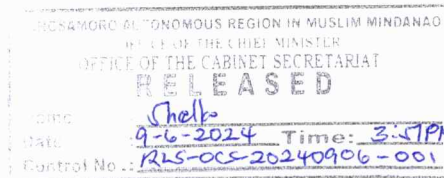 BANGSAMORO AUTONOMOUS REGION IN MUSLIM MINDANAO
OFFICE OF THE CHIEF MINISTER
OFFICE OF THE CABINET SECRETARIAT
RELEASED
Name
Date 9-6-2024 Time: 3:57PM
Control No.: RLS-OCS-20240906-001